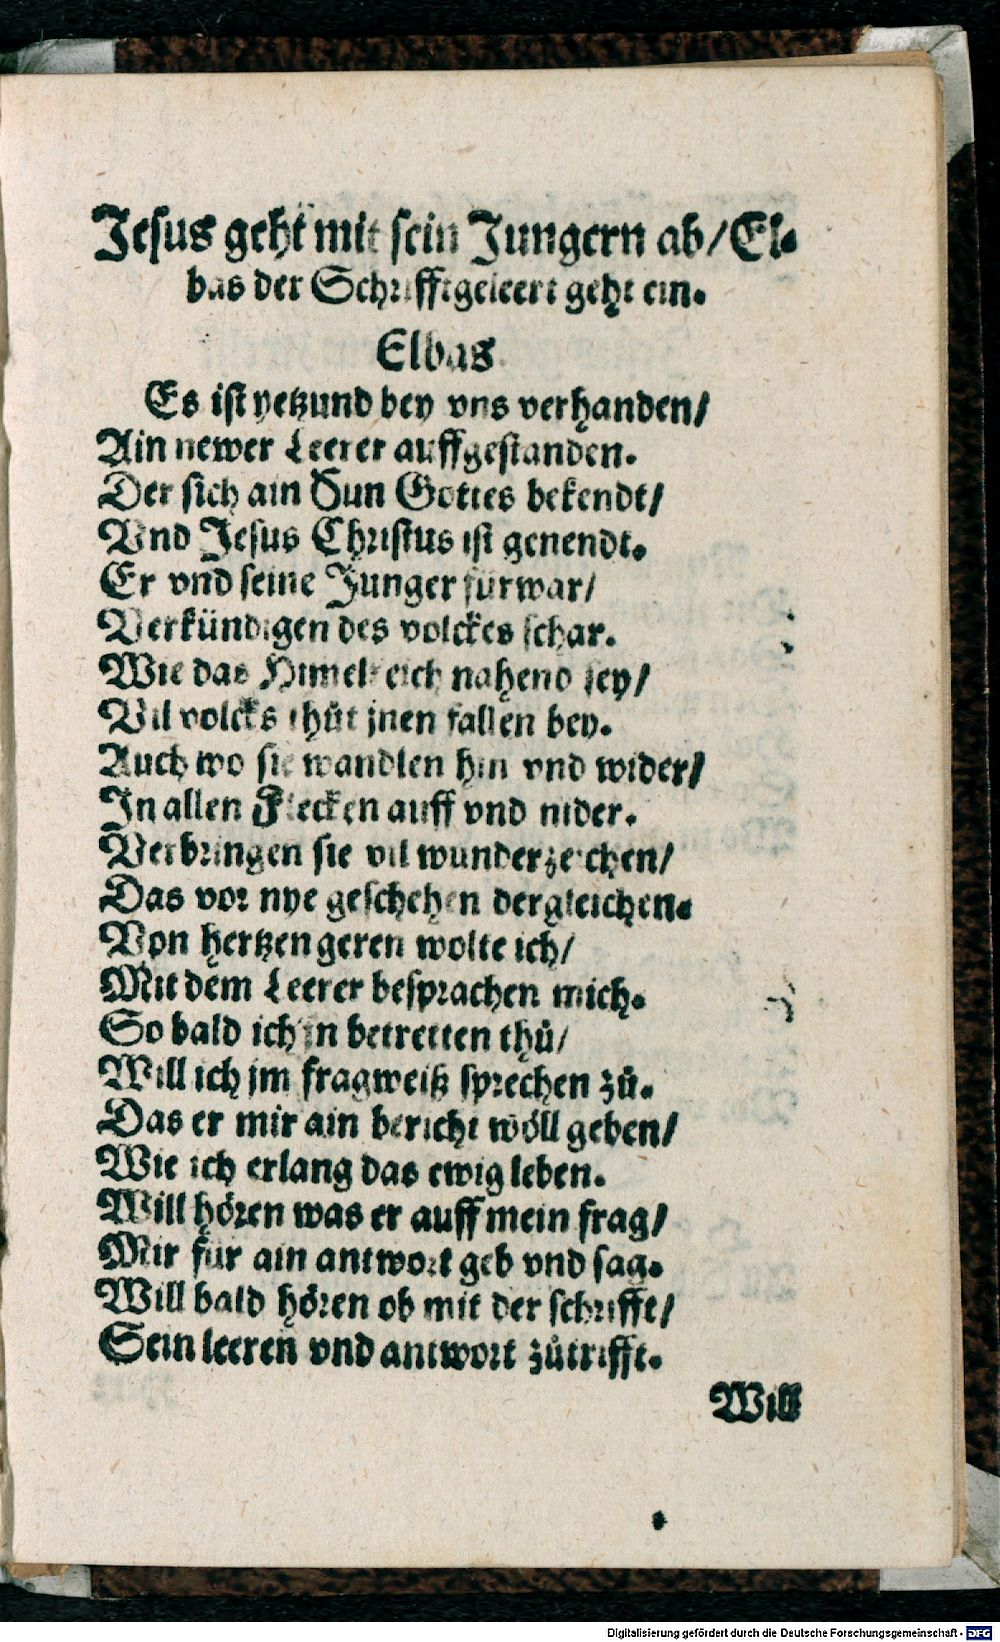 Jesus geht mit sein Jungern ab/ El-
bas der Schrifftgeleert geht ein.
Elbas
Es ist yetzund bey vns verhanden/
Ain newer Leerer auffgestanden.
Der sich ain Sun Gottes bekendt/
Vnd Jesus Christus ist genendt.
Er vnd seine Junger fürwar/
Verkündigen des volckes schar.
Wie das Himelreich nahend sey/
Vil volcks thůt jnen fallen bey.
Auch wo sie wandlen hin vnd wider/
In allen Flecken auff vnd nider.
Verbringen sie vil wunderzeichen/
Das vor nye geschehen dergleichen.
Von hertzen geren wolte ich/
Mit dem Leerer besprachen mich.
So bald ich jn betretten thů/
Will ich jm fragweiß sprechen zů.
Das er mir ain bericht wöll geben/
Wie ich erlang das ewig leben.
Will hören was er auff mein frag/
Mir für ain antwort geb vnd sag.
Will bald hören ob mit der schrifft/
Sein leeren vnd antwort zůtrifft.
Will
Digitalisierung gefördert durch die Deutsche Forschungsgemeinschaft - DFG